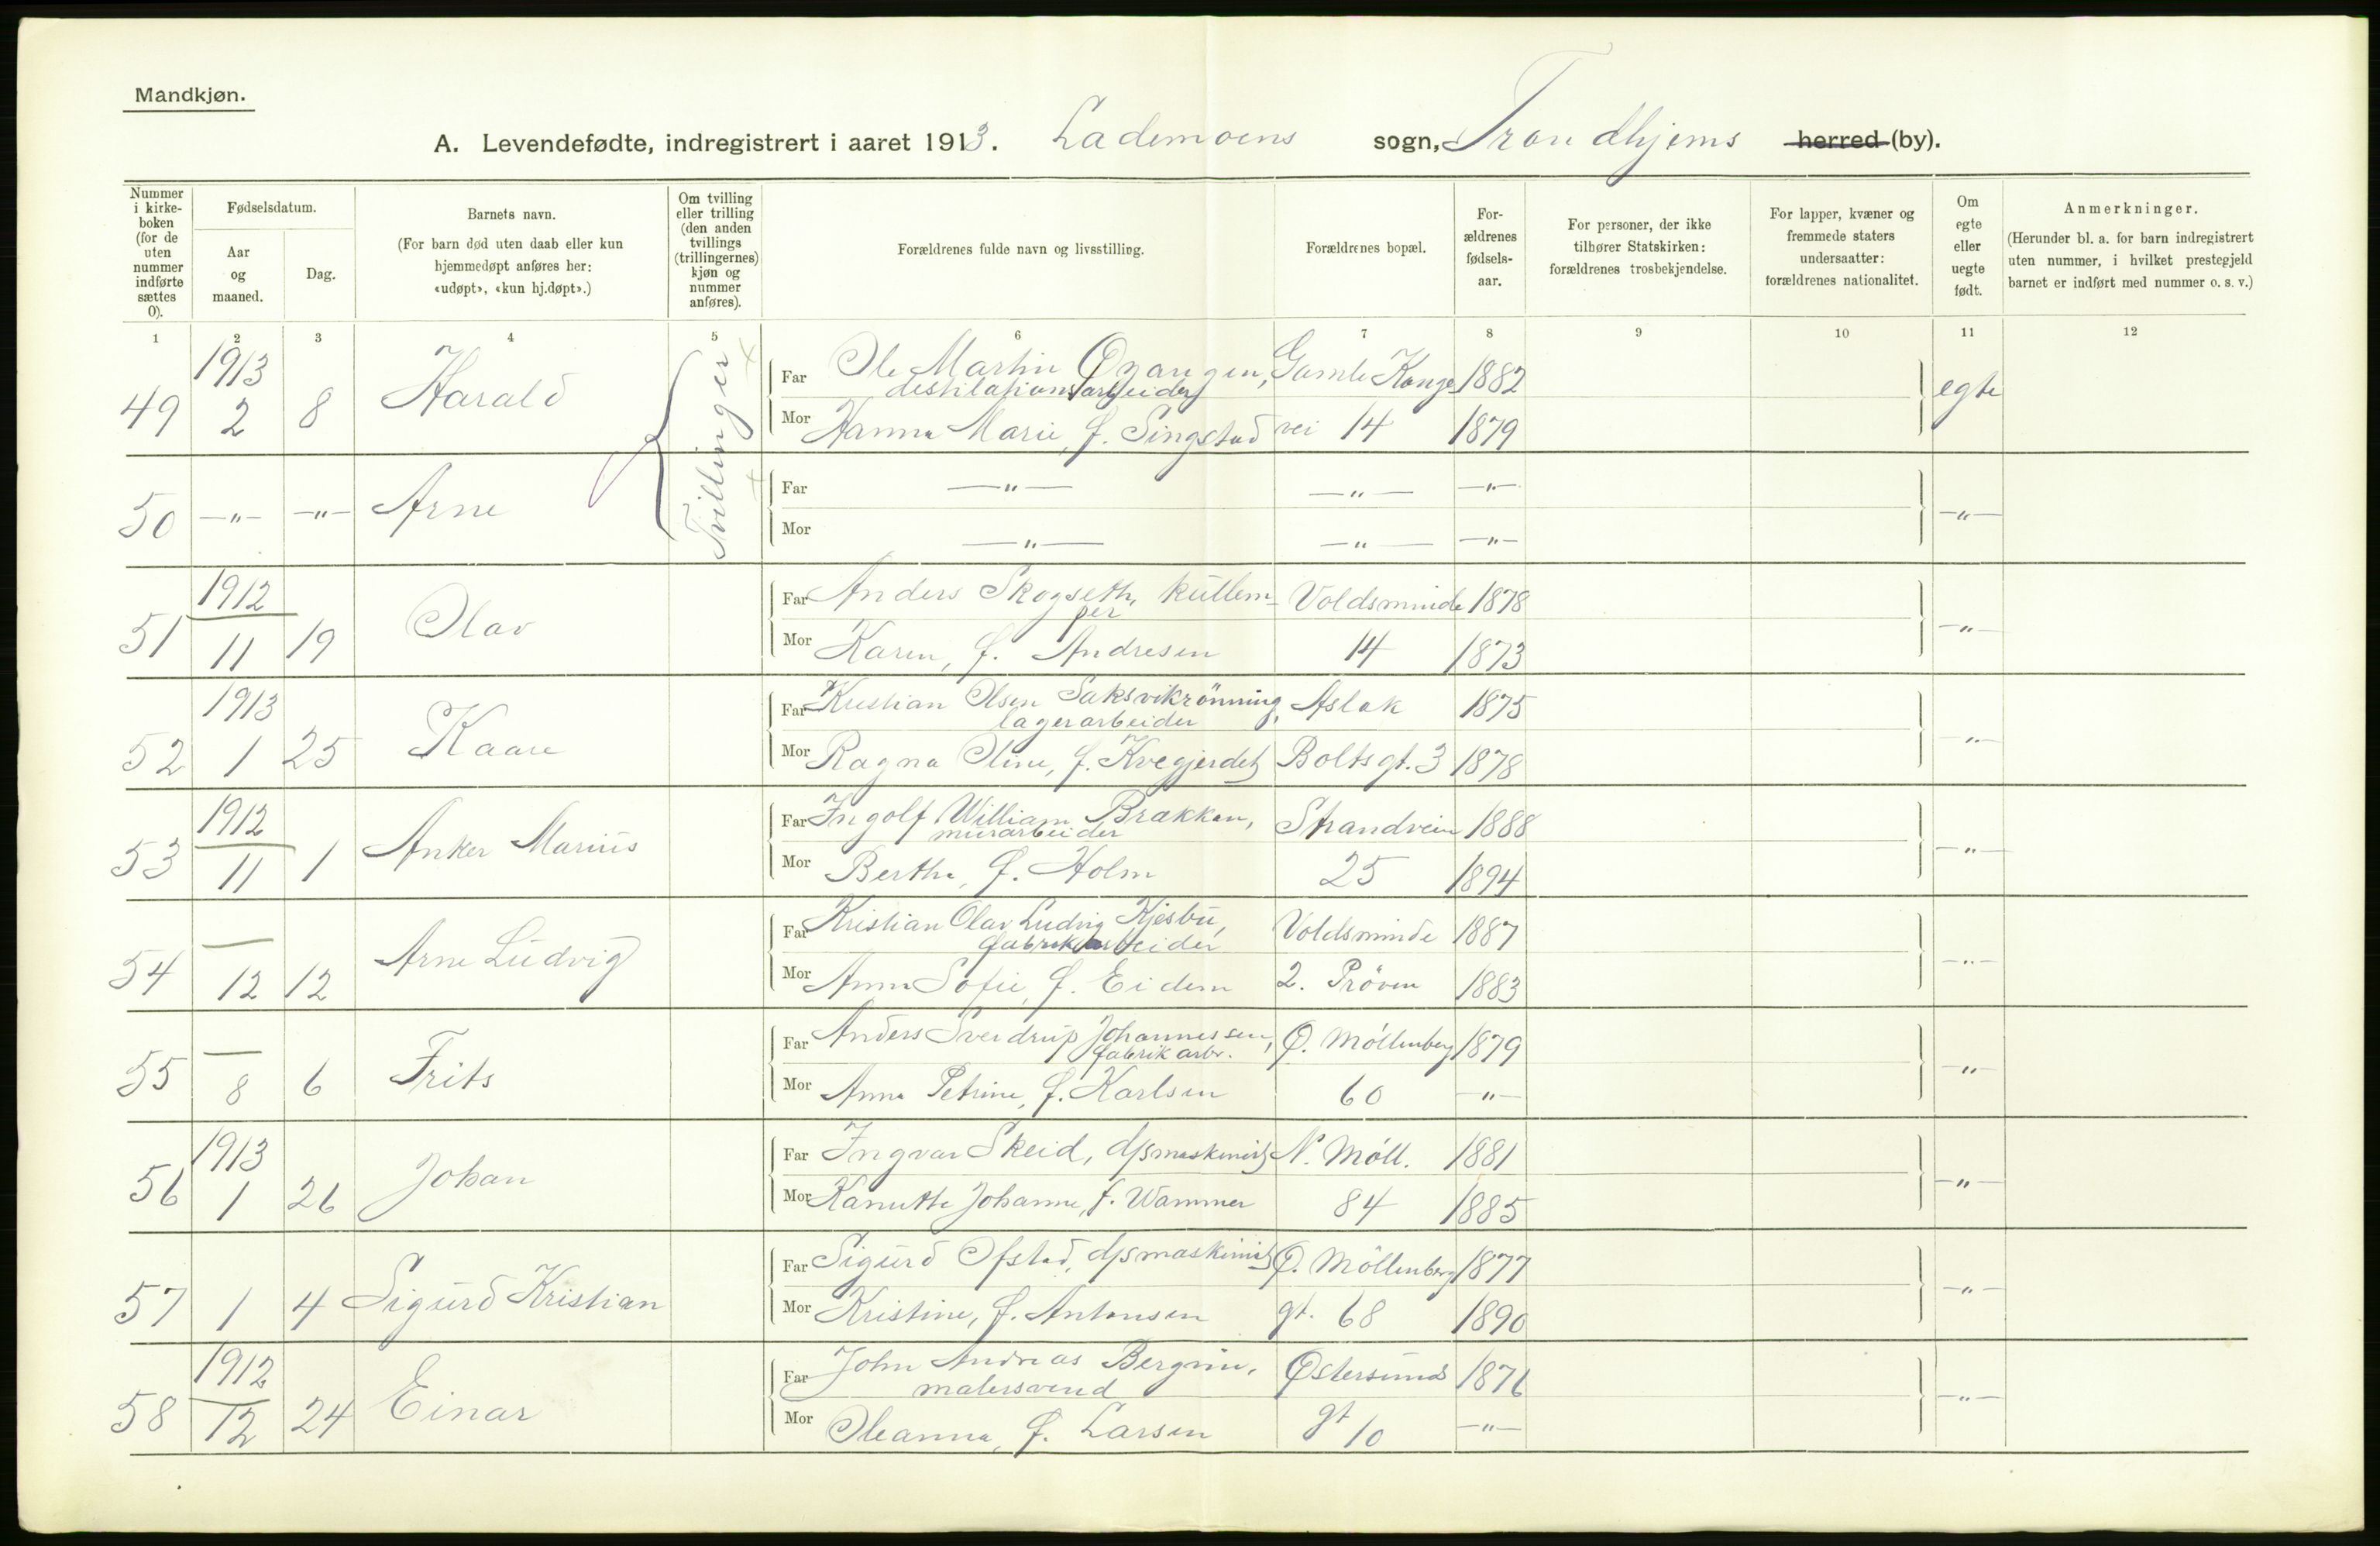 Mandkjøn.
A. Levendefødte, indregistrert i aaret 1913. Lademoens sogn, Trondhjems herred (by).
Nummer i kirke-boken (for de uten nummer indførte sættes 0).
Fødselsdatum.
Aar og maaned.
Dag.
Barnets navn.
(For barn død uten daab eller kun hjemmedøpt anføres her: «udøpt», «kun hj.døpt».)
Om tvilling eller trilling (den anden tvillings (trillingernes) kjøn og nummer anføres).
Forældrenes fulde navn og livsstilling.
Forældrenes bopæl.
For-ældrenes fødsels-aar.
For personer, der ikke tilhører Statskirken: forældrenes trosbekjendelse.
For lapper, kvæner og fremmede staters undersaatter: forældrenes nationalitet.
Om egte eller uegte født.
Anmerkninger.
(Herunder bl. a. for barn indregistrert uten nummer, i hvilket prestegjeld barnet er indført med nummer o. s. v.)
1 2 3 4 5 6 7 8 9 10 11 12
49 1913 2 8 Harald Tvillinger
Far Ole Martin, destilationsarbeider Gamle Konge 1882 egte
Mor Hanna Marie, f. Singstad vei 14 1879
50 —"— —"— Arne
Far —"— —"— —"— —"—
Mor —"— —"— —"—
51 1912 11 19 Olav
Far Anders Skogseth, kullemper Voldsminde 1878 —"—
Mor Karen, f. Andresen 14 1873
52 1913 1 25 Kaare
Far Kristian Olsen Saksvikrönning, lagerarbeider Aslak 1875 —"—
Mor Ragna Oline, f. Kvegjerdet Boltsgt. 3 1878
53 1912 11 1 Anker Marius
Far Ingolf William Brækken, murarbeider Strandveien 1888 —"—
Mor Bertha, f. Holm 25 1894
54 — 12 12 Arne Ludvig
Far Kristian Olav Ludvig Kjesbu, fabrikarbeider Voldsminde 1887 —"—
Mor Anna Sofie, f. Eidem 2. Pröven 1883
55 — 8 6 Frits
Far Anders Sverdrup Johannessen, fabrikarbr. Ø. Möllenberg 1879 —"—
Mor Anna Petrine, f. Karlsen 60 —"—
56 1913 1 26 Johan
Far Ingvar Skeid, d/smaskinist N. Möll. 1881 —"—
Mor Kanutte Johanne, f. Wammer 84 1885
57 1 4 Sigurd Kristian
Far Sigurd Ofstad, d/smaskinist Ø. Möllenberg 1877 —"—
Mor Kristine, f. Antonsen gt. 68 1890
58 1912 12 24 Einar
Far John Andreas Bergum, malersvend Østersunds 1876 —"—
Mor Oleanna, f. Larsen gt 10 —"—